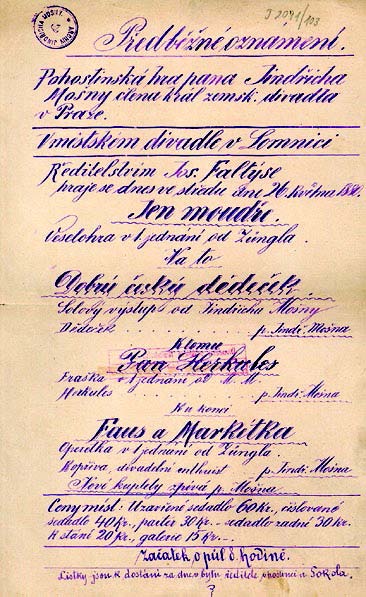 J 2041/103
Předběžné oznámení.
Pohostinská hra pana Jindřicha
Mošny člena král. zemsk. divadla
v Praze.
V místském divadle v Lomnici
Ředitelstvím Jos. Faltyse
hraje se dnes ve středu dne 26. května 1880.
Jen moudře.
Veselohra v 1 jednání od Züngla.
Na to
Dobrý český dědeček
Solový výstup od Jindřicha Mošny
Dědeček . . . . . . . . p. Jindř. Mošna
K tomu
Pan Herkules
Fraška v 1 jednání od
Herkules . . . . . . . . p. Jindř. Mošna
Ku konci
Faus a Markitka
Operetka v 1 jednání od Züngla.
Kopřiva, divadelní p. Jindř. Mošna
Nové kuplety zpívá p. Mošna
Ceny míst: Uzavřené sedadlo 60 kr., číslované
sedadlo 40 kr., parter 30 kr. – sedadlo zadní 30 kr.
K stání 20 kr., galerie 15 kr. —
Začátek o půl 8. hodině.
Lístky jsou k dostání za dne v bytu ředitele, u Sokola.